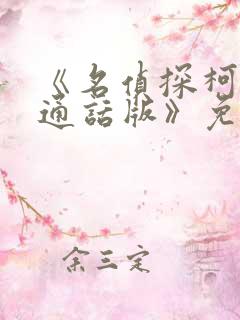 《名偵探柯
通話版》免
余三定